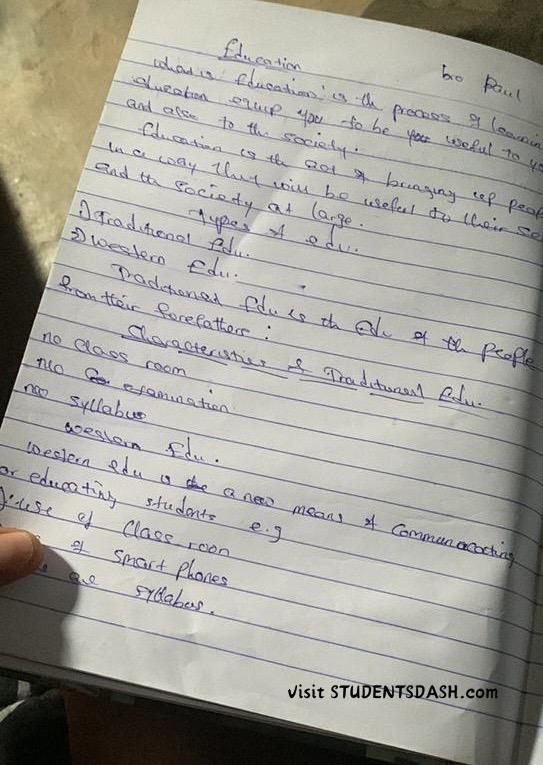 Education bro Paul
what is Education: is the process of learnin
education equip you to be you useful to yo
and also to the society.
Education is the act of bringing up peop
in a way they will be useful to their se
and the society at large.
Types of edu.
1) Traditional Edu.
2) Western Edu.
Traditional Edu is th Edu of the people
from their forefathers:
Characteristics of Traditional Edu.
no class room
no examination
no syllabus
western Edu.
western edu is a new means of communicating
or educating students e.g
use of Class room
of smart phones
are syllabus.
visit STUDENTSDASH.com